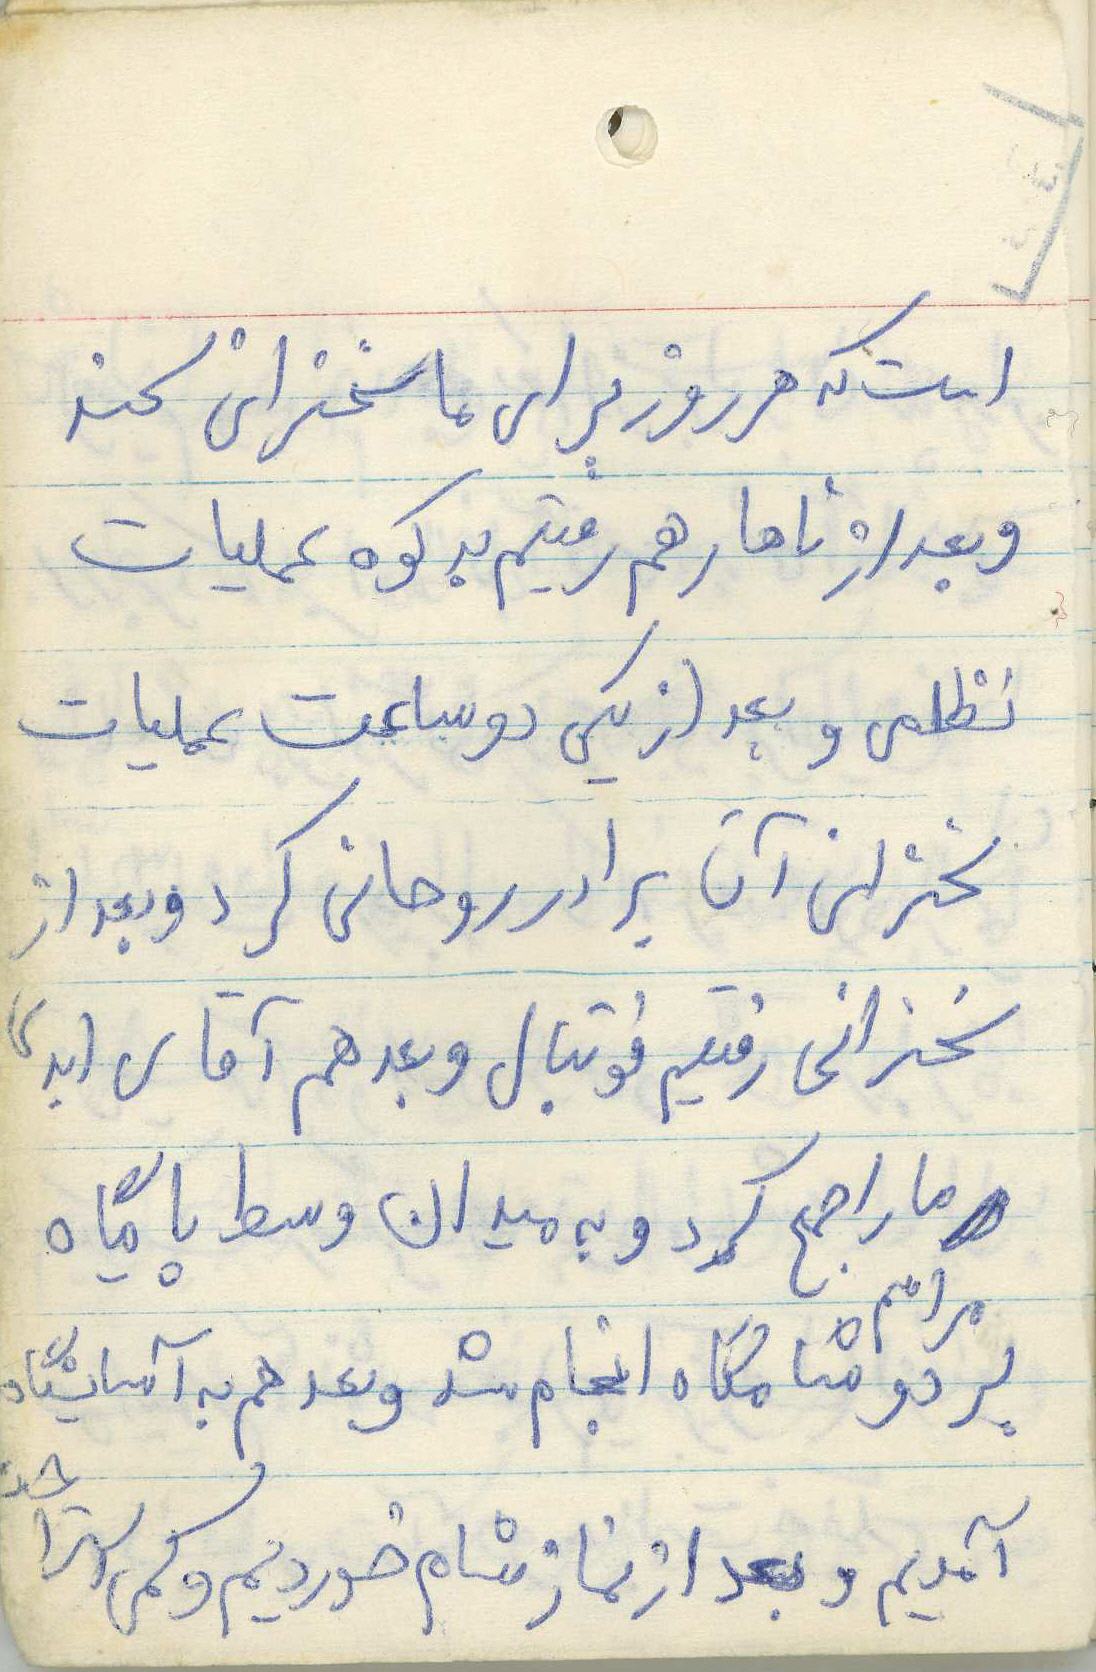 است که هر روز برای ما سخنرانی کند
و بعد از ناهار هم رفتیم به کوه عملیات
نظامی و بعد از یکی دو ساعت عملیات
سخنرانی آن برادر روحانی کرد و بعد از
سخنرانی رفتیم فوتبال و بعد هم آقای
ما را جمع کرد و به میدان وسط پایگاه
برد و مراسم شامگاه انجام شد و بعد هم به آسایشگاه
آمدیم و بعد از نماز شام خوردیم و کمی استراحت